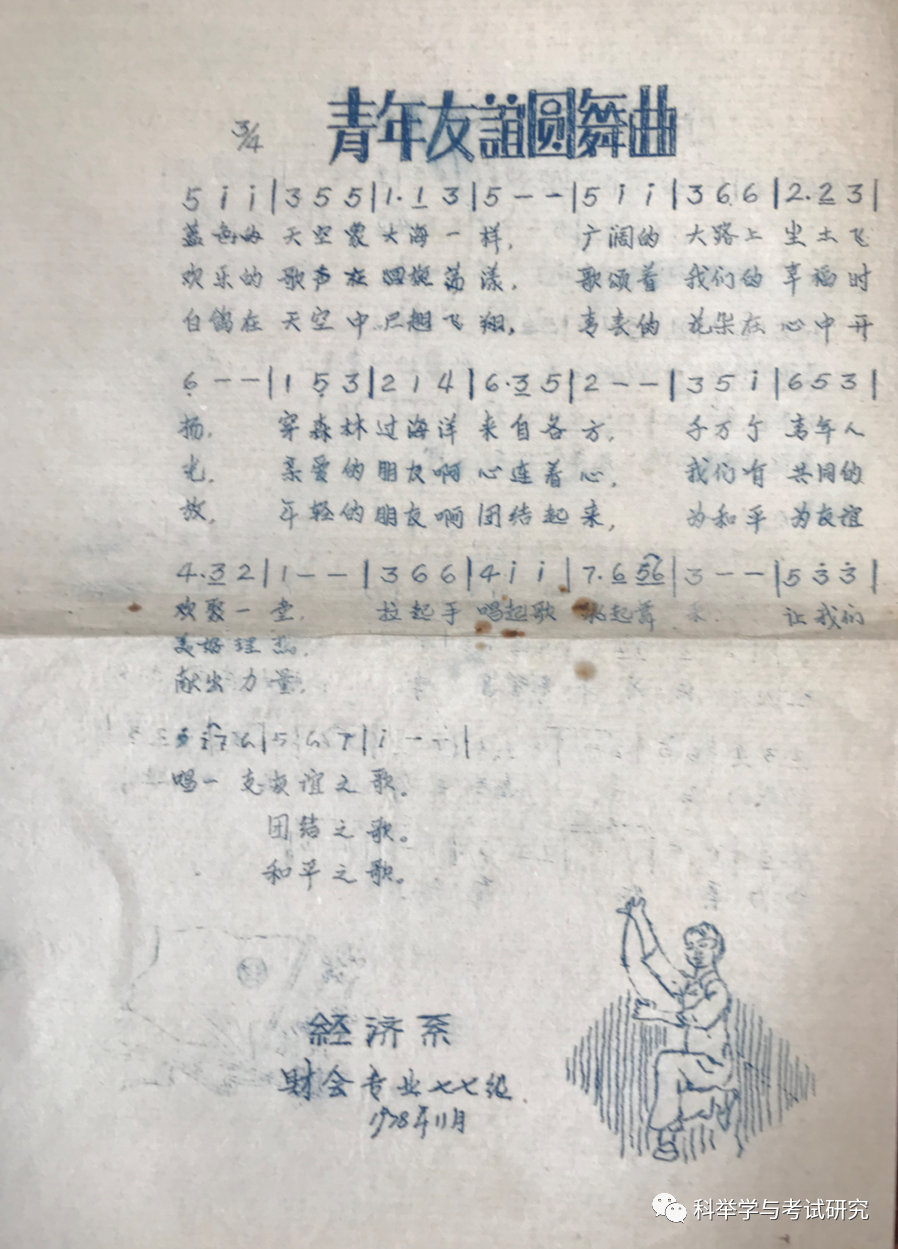 青年友誼圆舞曲
3/4
5 i i | 3 5 5 | 1· 1 3 | 5 - - | 5 i i | 3 6 6 | 2· 2 3 |
蓝色的 天空象 大海一样, 广阔的 大路上 尘土飞
欢乐的 歌声在 四处荡漾, 歌颂着 我们的 幸福时
白鸽在 天空中 展翅飞翔, 青春的 花朵在 心中开
6 - - | 1 5 3 | 2 1 4 | 6· 3 5 | 2 - - | 3 5 i | 6 5 3 |
扬, 穿森林过海洋来自各方, 千万个 青年人
光, 亲爱的朋友啊心连着心, 我们有 共同的
放, 年轻的朋友啊团结起来, 为和平 为友谊
4· 3 2 | 1 - - | 3 6 6 | 4 i i | 7· 6 56 | 3 - - | 5 3 3 |
欢聚一堂. 拉起手 唱起歌 起舞 来. 让我们
美好理想.
献出力量.
i7 6 | 5 6 7 | i - - |
唱一支友谊之歌。
团结之歌。
和平之歌。
経济系
财会专业七七级
1978年11月
科举学与考试研究